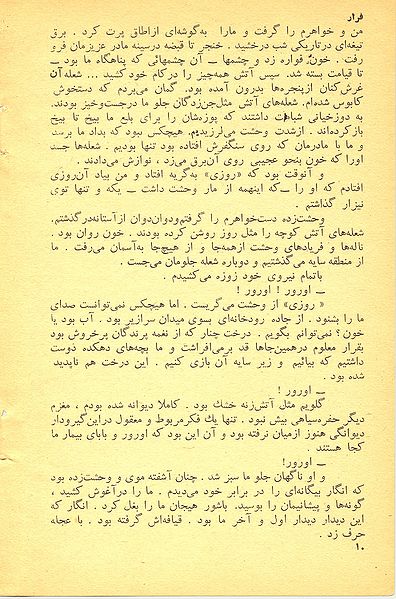 فرار
من و خواهرم را گرفت و مارا به‌گوشه‌ای ازاطاق پرت کرد . برق
تیغه‌ای درتاریکی شب درخشید . خنجر تا قبضه درسینه مادر عزیزمان فرو
رفت . خون فواره زد و چشمها ــ آن چشمهائی که پناهگاه ما بود ــ
تا قیامت بسته شد. سپس آتش همه‌چیز را درکام خود کشید ... شعله آن
غرش‌کنان ازپنجره‌ها بدرون آمده بود. گمان می‌بردم که دستخوش
کابوس شده‌ام. شعله‌های آتش مثل‌جن‌زدگان جلو ما درجست‌وخیز بودند.
به دوزخیانی شباهت داشتند که پوزه‌شان را برای بلع ما بیخ تا بیخ
باز کرده‌اند . ازشدت وحشت می‌لرزیدم. هیچکس نبود که بداد ما برسد
و ما با مادرمان که روی سنگفرش افتاده بود تنها بودیم . شعله‌ها جسد
اورا که خون بنحو عجیبی روی آن‌برق می‌زد ، نوازش می‌دادند .
و آنوقت بود که «روزی» به‌گریه افتاد و من بیاد آن‌روزی
افتادم که او را ــ که اینهمه از مار وحشت داشت ــ یکه و تنها توی
نیزار گذاشتم .
وحشت‌زده دست‌خواهرم را گرفتم‌ودوان‌دوان ازآستانه‌درگذشتم.
شعله‌های آتش کوچه را مثل روز روشن کرده بودند . خون روان بود .
ناله‌ها و فریادهای وحشت ازهمه‌جا و از هیچ‌جا به‌آسمان می‌رفت . ما
از منطقه سایه می‌گذشتیم و دوباره شعله جلومان می‌جست .
باتمام نیروی خود زوزه می‌کشیدم .
ــ اورور ! اورور !
« روزی» از وحشت می‌گریست . اما هیچکس نمی‌توانست صدای
ما را بشنود . از جاده رودخانه‌ای بسوی میدان سرازیر بود . آب بود یا
خون ؟ نمی‌توانم بگویم . درخت چنار که از نغمه پرندگان پرخروش بود
بقرار معلوم درهمین‌جاها قد برمی‌افراشت و ما بچه‌های دهکده دوست
داشتیم که بیائیم و زیر سایه آن بازی کنیم . این درخت هم ناپدید
شده بود .
ــ اورور !
گلویم مثل آتش‌زنه خشك بود . کاملا دیوانه شده بودم ، مغزم
دیگر حفره‌سیاهی بیش نبود. تنها یك فکرمربوط و معقول دراین‌گیرودار
دیوانگی هنوز ازمیان نرفته بود و آن این بود که اورور و بابای بیمار ما
کجا هستند .
ــ اورور!
و او ناگهان جلو ما سبز شد . چنان آشفته موی و وحشت‌زده بود
که انگار بیگانه‌ای را در برابر خود می‌دیدم . ما را درآغوش کشید ،
گونه‌ها و پیشانیمان را بوسید. باشور هیجان ما را بغل کرد . انگار که
این دیدار دیدار اول و آخر ما بود . قیافه‌اش گرفته بود . با عجله
حرف زد .
۱۰